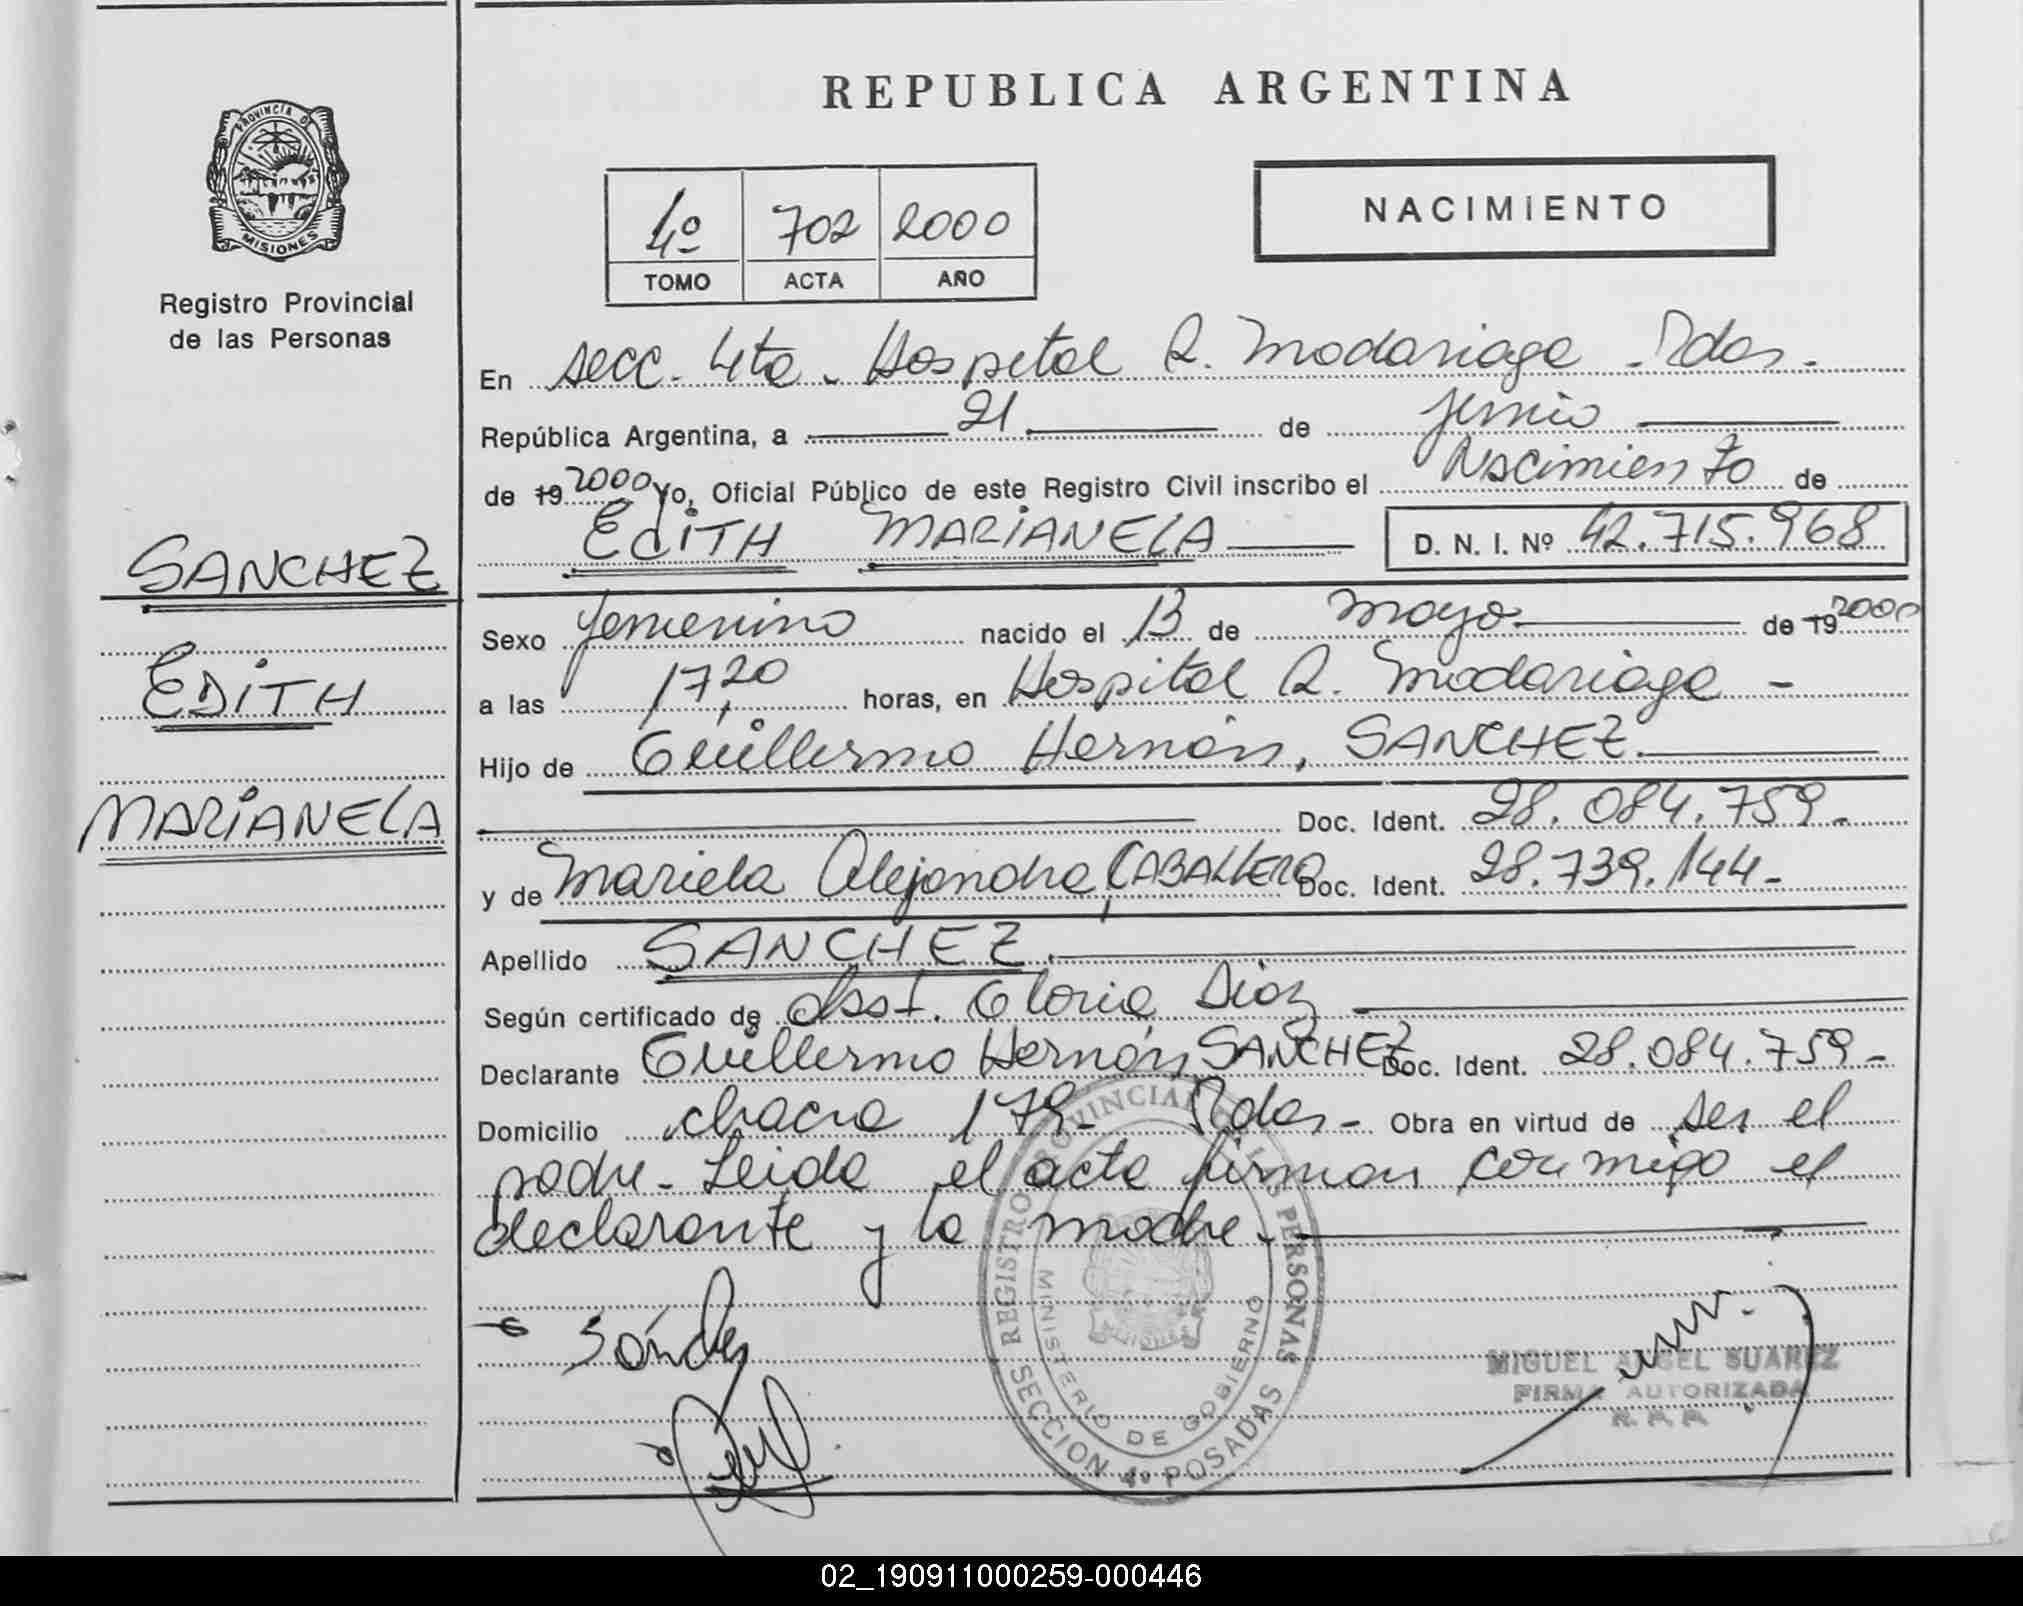 REPUBLICA ARGENTINA
PROVINCIA D
MISIONES
Registro Provincial
de las Personas
4º 702 2000
TOMO ACTA AÑO
NACIMIENTO
En secc. 4ta. Hospital R. Madariaga - Pdas.
República Argentina, a 21 de junio
de 19 2000 Yo, Oficial Público de este Registro Civil inscribo el Nacimiento de
EDITH MARIANELA D. N. I. Nº 42.715.968
SANCHEZ
EDITH
MARIANELA
Sexo femenino nacido el 13 de mayo de 19 2000
a las 17,20 horas, en Hospital R. Madariaga -
Hijo de Guillermo Hernán, SANCHEZ
Doc. Ident. 28.084.759.-
y de Mariela Alejandra, CABALLERO Doc. Ident. 28.739.144-
Apellido SANCHEZ.
Según certificado de Obst. Gloria Diaz
Declarante Guillermo Hernán SANCHEZ Doc. Ident. 28.084.759-
Domicilio chacra 179- Pdas- Obra en virtud de ser el
padre - Leida el acta firman conmigo el
declarante y la madre.-
REGISTRO PROVINCIAL PERSONAS
MINISTERIO DE GOBIERNO
SECCION 4º POSADAS
MIGUEL ANGEL SUAREZ
FIRMA AUTORIZADA
R. P. P.
02_190911000259-000446